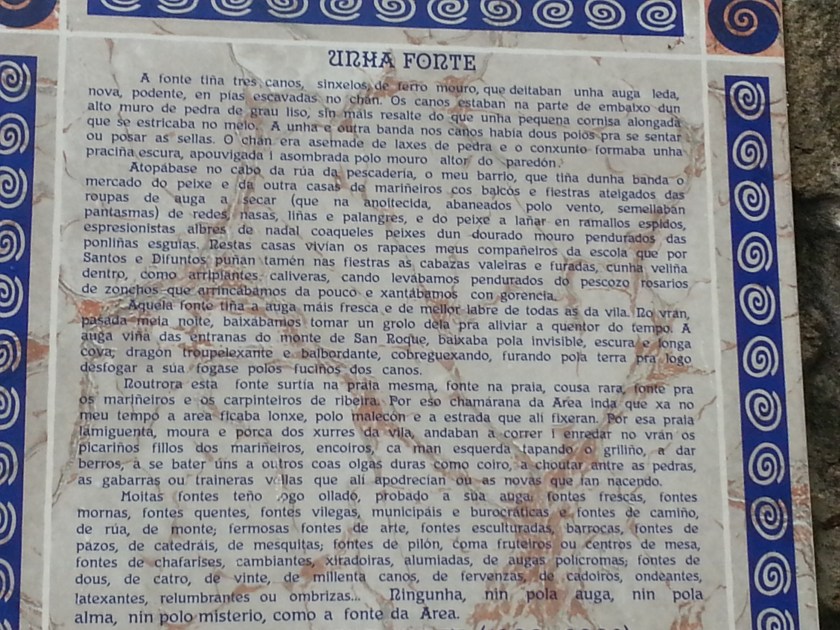 UNHA FONTE
A fonte tiña tres canos, sinxelos, de ferro mouro, que deitaban unha auga leda,
nova, podente, en pías escavadas no chan. Os canos estaban na parte de embaixo dun
alto muro de pedra de grau liso, sin máis resalte do que unha pequena cornisa alongada
que se estricaba no meio. A unha e outra banda nos canos había dous polos pra se sentar
ou posar as sellas. O chan era asemade de laxes de pedra e o conxunto formaba unha
praciña escura, apouvigada i asombrada polo mouro altor do paredón.
Atopábase no cabo da rúa da pescadería, o meu barrio, que tiña dunha banda o
mercado do peixe e da outra casas de mariñeiros cos balcós e fiestras ateigados das
roupas de auga a secar (que na anoitecida, abaneados polo vento, semellaban
pantasmas) de redes, nasas, liñas e palangres, e do peixe a lañar en ramallos espidos,
espresionistas albres de nadal coaqueles peixes dun dourado mouro pendurados das
ponliñas esguías. Nestas casas vivían os rapaces meus compañeiros da escola que por
Santos e Difuntos puñan tamén nas fiestras as cabazas valeiras e furadas, cunha veliña
dentro, como arripiantes caliveras, cando levábamos pendurados do pescozo rosarios
de zonchos que arrincábamos da pouco e xantábamos con gorencia.
Aquela fonte tiña a auga máis fresca e de mellor labre de todas as da vila. No vran,
pasada meia noite, baixábamos tomar un grolo dela pra aliviar a quentor do tempo. A
auga viña das entranas do monte de San Roque, baixaba pola invisible, escura e longa
cova, dragón troupelexante e balbordante, cobreguexando, furando pola terra pra logo
desfogar a súa fogase polos fuciños dos canos.
Noutrora esta fonte surtía na praia mesma, fonte na praia, cousa rara, fonte pra
os mariñeiros e os carpinteiros de ribeira. Por eso chamárana da Area inda que xa no
meu tempo a area ficaba lonxe, polo malecón e a estrada que alí fixeran. Por esa praia
lamiguenta, moura e porca dos xurres da vila, andaban a correr i enredar no vrán os
picariños fillos dos mariñeiros, encoiros, ca man esquerda tapando o griliño, a dar
berros, a se bater úns a outros coas olgas duras como coiro, a choutar antre as pedras,
as gabarras ou traineras vellas que alí apodrecían ou as novas que ían nacendo.
Moitas fontes teño logo ollado, probado a súa auga: fontes frescas, fontes
mornas, fontes quentes, fontes vilegas, municipáis e burocráticas e fontes de camiño,
de rúa, de monte; fermosas fontes de arte, fontes esculturadas, barrocas, fontes de
pazos, de catedráis, de mesquitas; fontes de pilón, coma fruteiros ou centros de mesa,
fontes de chafarises, cambiantes, xiradoiras, alumiadas, de augas polícromas; fontes de
dous, de catro, de vinte, de millenta canos, de fervenzas, de cadoiros, ondeantes,
latexantes, relumbrantes ou ombrizas... Ningunha, nin pola auga, nin pola
alma, nin polo misterio, como a fonte da Area.